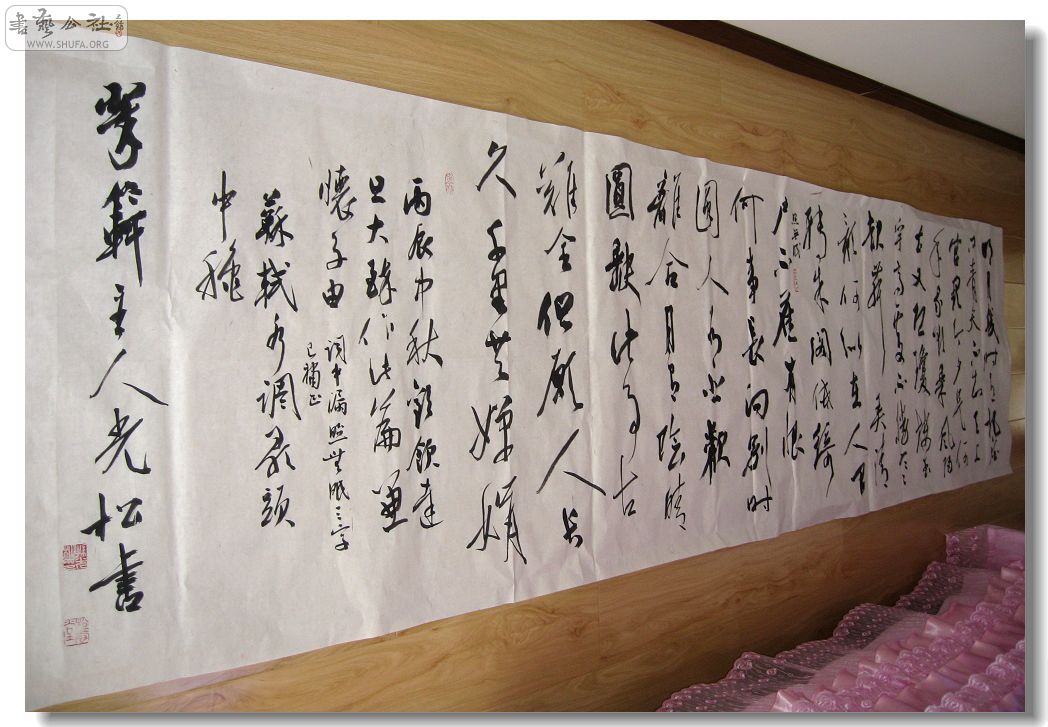 書藝公社
WWW.SHUFA.ORG
明月幾时有把酒
问青天不知天上
宫闕今夕是何
年我欲乘風歸
去又恐瓊樓玉
宇高處不勝寒
起舞弄清
影何似在人間
轉朱阁低绮
户不應有恨
照無眠
何事長向别时
圆人有悲歡
離合月有陰晴
圓缺此事古
難全但願人长
久千里共嬋娟
丙辰中秋歡飲達
旦大醉作此篇兼
懷子由
词中漏照無眠三字
已補正
蘇軾水調歌頭
中穐
主人光松书